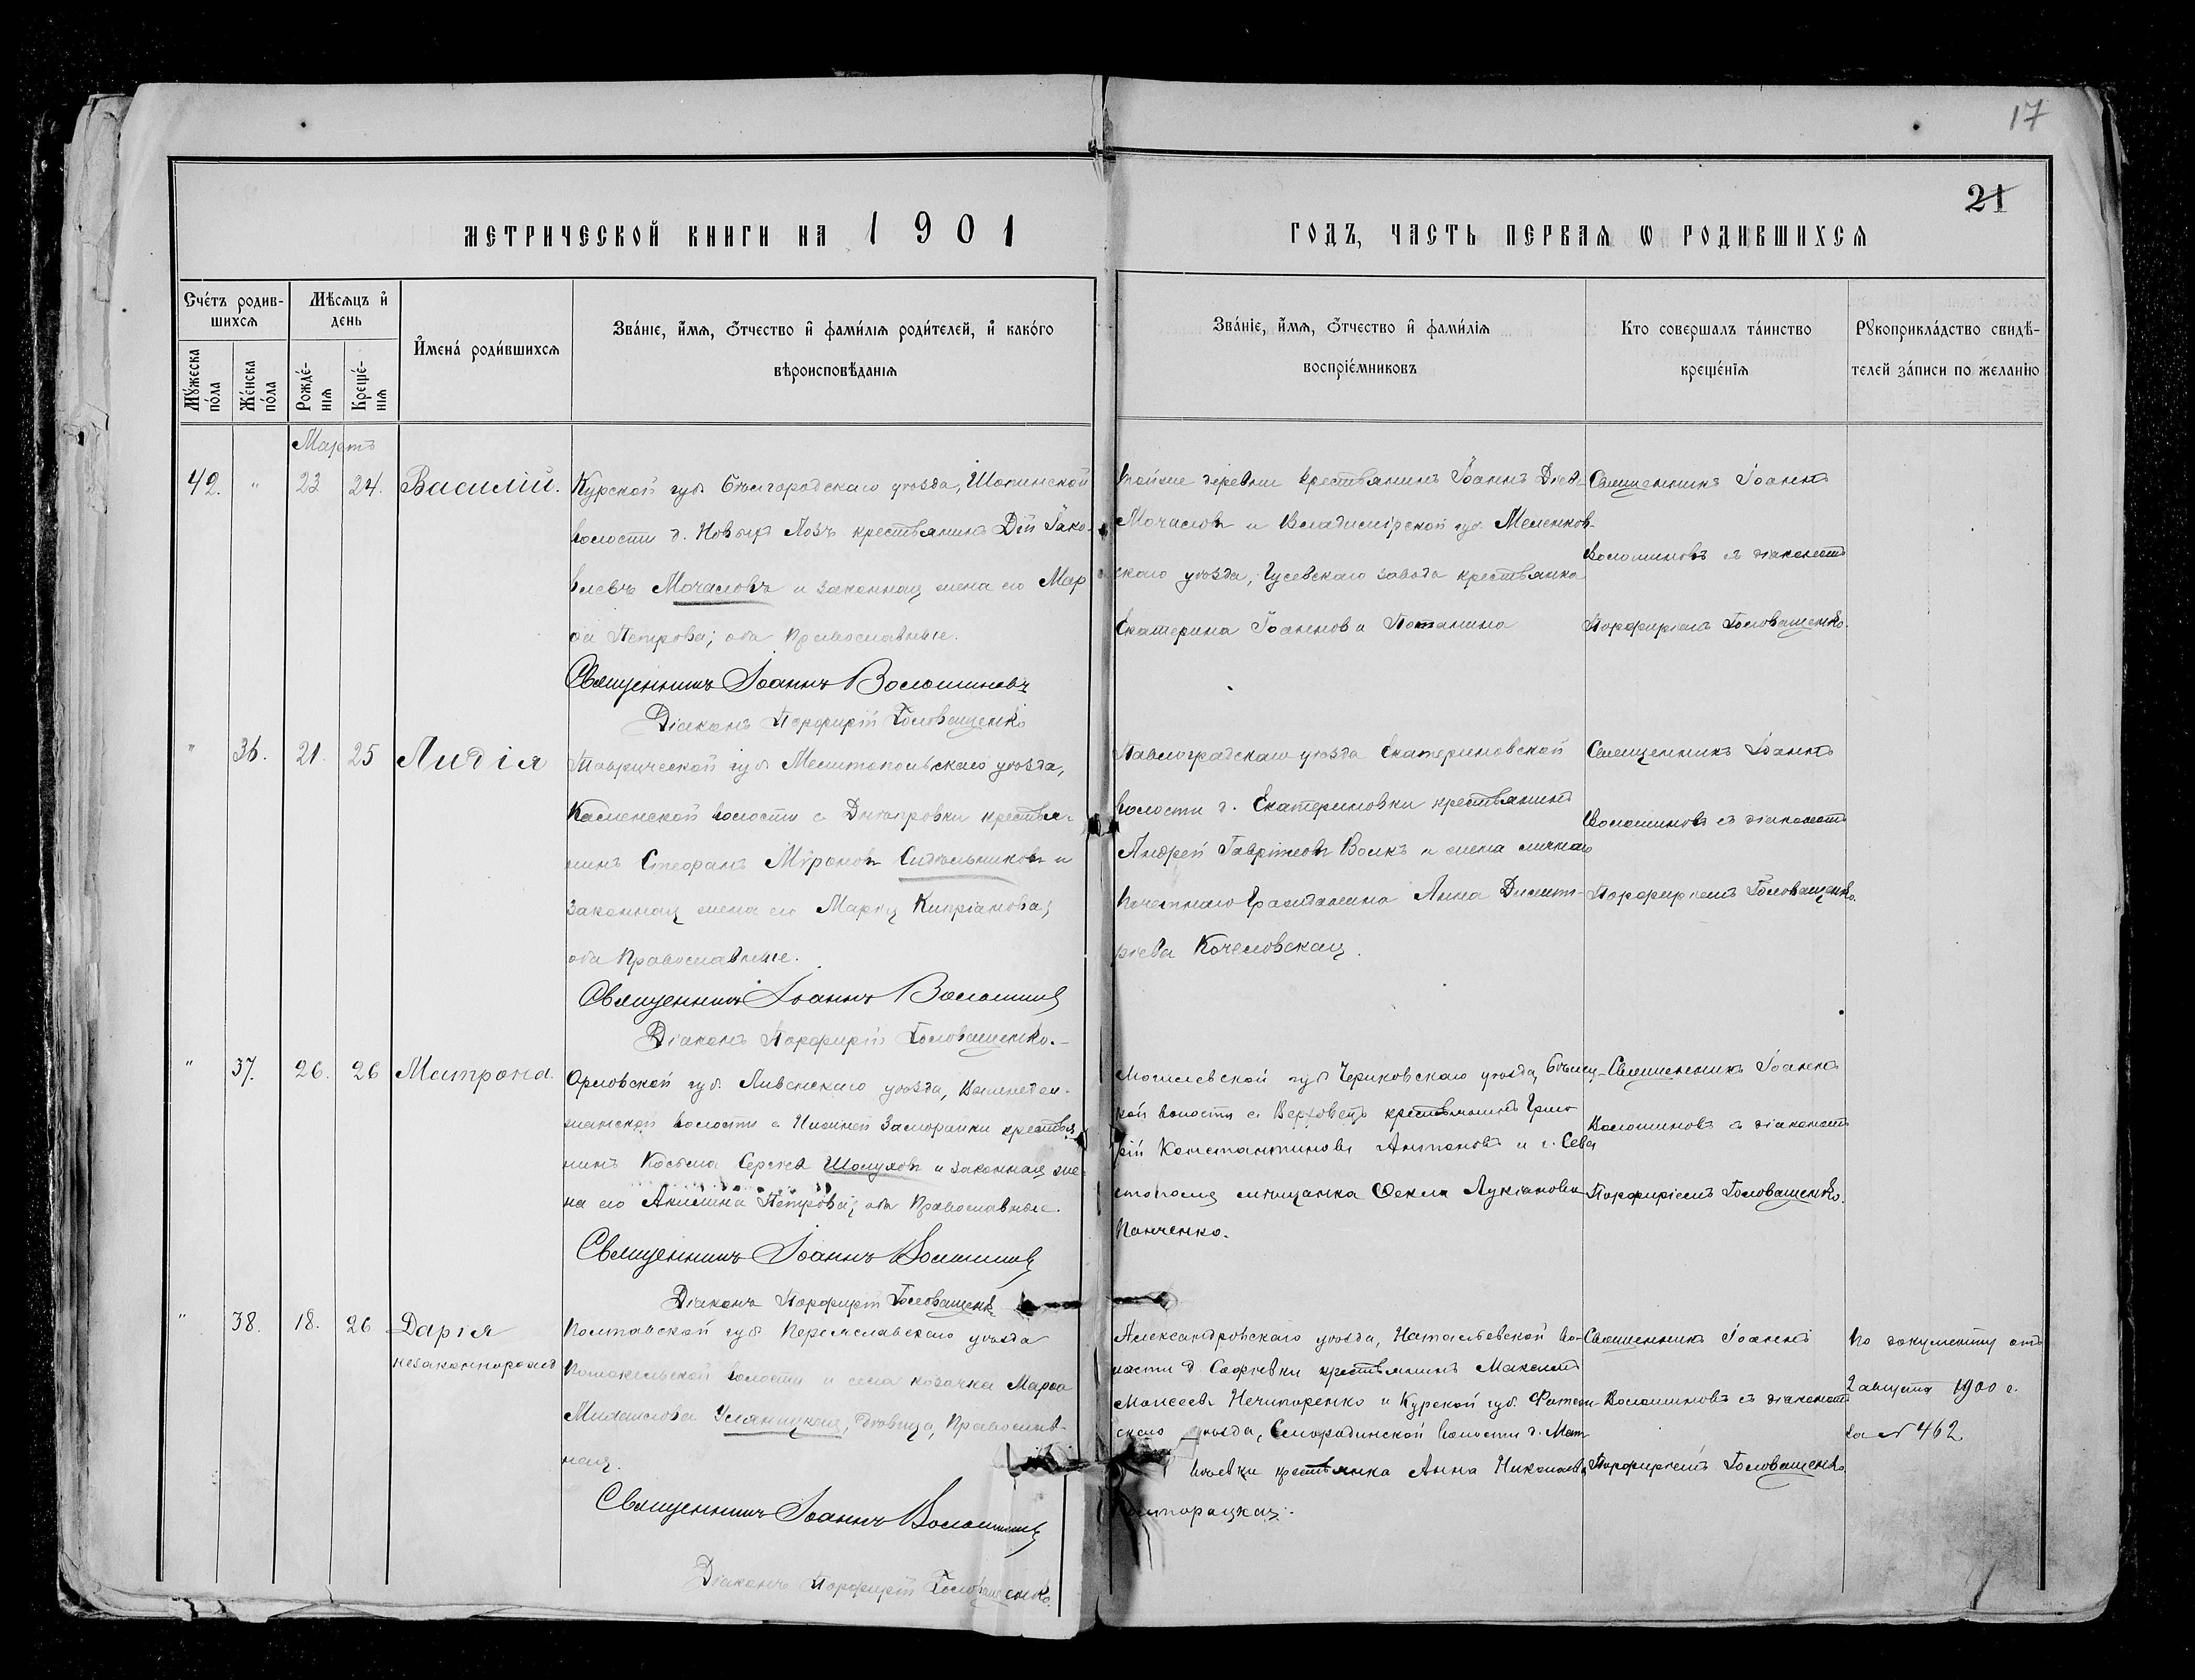 17
21
МЕТРИЧЕСКОЙ КНИГИ НА 1901
ГОДЪ, ЧАСТЬ ПЕРВАЯ Ѡ РОДИВШИХСЯ
Счéтъ родив-
шихся
Мѣсяцъ и҆
день
И҆менá роди́вшихся
Звáнїе, и҆́мя, ѻ҆́тчество и҆ фами́лїя роди́телей, и҆ какóгo
вѣроисповѣ́данїя
Мꙋ́жеска
пóла
Жéнска
пóла
Рождé-
нїя
Крещé-
нїя
Звáнїе, и҆́мя, ѻ҆́тчество и҆ фами́лїя
воспрїéмниковъ
Кто совершалъ тáинство
крещéнїя
Рꙋкоприклáдство свидѣ́-
телей зáписи по желáнїю
Мартъ
42. " 23 24. Василій.
Курской губ. Бѣлгородскаго уѣзда, Шопинской
волости д. Новыхъ Лозъ крестьянинъ Дій Іако-
влевъ Мочаловъ и законная жена его Мар
ѳа Петрова; оба Православные.
Священникъ Іоаннъ Волошиновъ
Діаконъ Порфирій Головащенко
тойже деревни крестьянинъ Іоаннъ Діев
Мочаловъ и Владимірской губ. Меленков-
скаго уѣзда, Гусевскаго завода крестьянка
Екатерина Іоаннова Потанина
Священникъ Іоаннъ
Волошиновъ съ діакономъ
Порфиріемъ Головащенко.
" 36. 21. 25 Лидія
Таврической губ. Мелитопольскаго уѣзда,
Каменской волости с. Днѣпровки крестья-
нинъ Стефанъ Мѵроновъ Сидѣльниковъ и
законная жена его Марія Кипріанова;
оба Православные.
Священникъ Іоаннъ Волошинов
Діаконъ Порфирій Головащенко.
Павлоградскаго уѣзда Екатериновской
волости д. Екатериновки крестьянинъ
Андрей Гавріиловъ Волкъ и жена личнаго
почетнаго Гражданина Анна Димит-
ріева Кочеловская.
Священникъ Іоаннъ
Волошиновъ съ діакономъ
Порфиріемъ Головащенко.
" 37. 26. 26 Матрона.
Орловской губ. Ливенскаго уѣзда,
волости с Нижней крестья
нинъ Косьма Сергіев и законная же-
на его Акилина Петрова; оба Православные.
Священникъ Іоаннъ Волошинов
Діаконъ Порфирій Головащенк
Могилевской губ Чериковскаго уѣзда, Бѣлиц-
кой волости с. Верховецъ крестьянинъ Григо
рій Константиновъ Антоновъ и г. Сева
стополя мѣщанка Ѳекла Лукіанова
Панченко.
Священникъ Іоаннъ
Волошиновъ съ діакономъ
Порфиріемъ Головащенко.
" 38. 18. 26 Дарія
незаконнорожд
Полтавской губ. Переяславскаго уѣзда
волости и села козачка Марѳа
Михаилова, дѣвица, Православ-
ная.
Священникъ Іоаннъ Волошинов
Діаконъ Порфирій Головащенко.
Александровскаго уѣзда, Натальевской во-
лости д Софіевки крестьянинъ Максимъ
Моисеевъ Нечипоренко и Курской губ. Фатеж
скаго уѣзда, Смородинской волости д. Мат
вѣевки крестьянка Анна Николаева
Полторацкая.
Священникъ Іоаннъ
Волошиновъ съ діакономъ
Порфиріемъ Головащенко.
По документу отъ
2 августа 1900 г.
за № 462